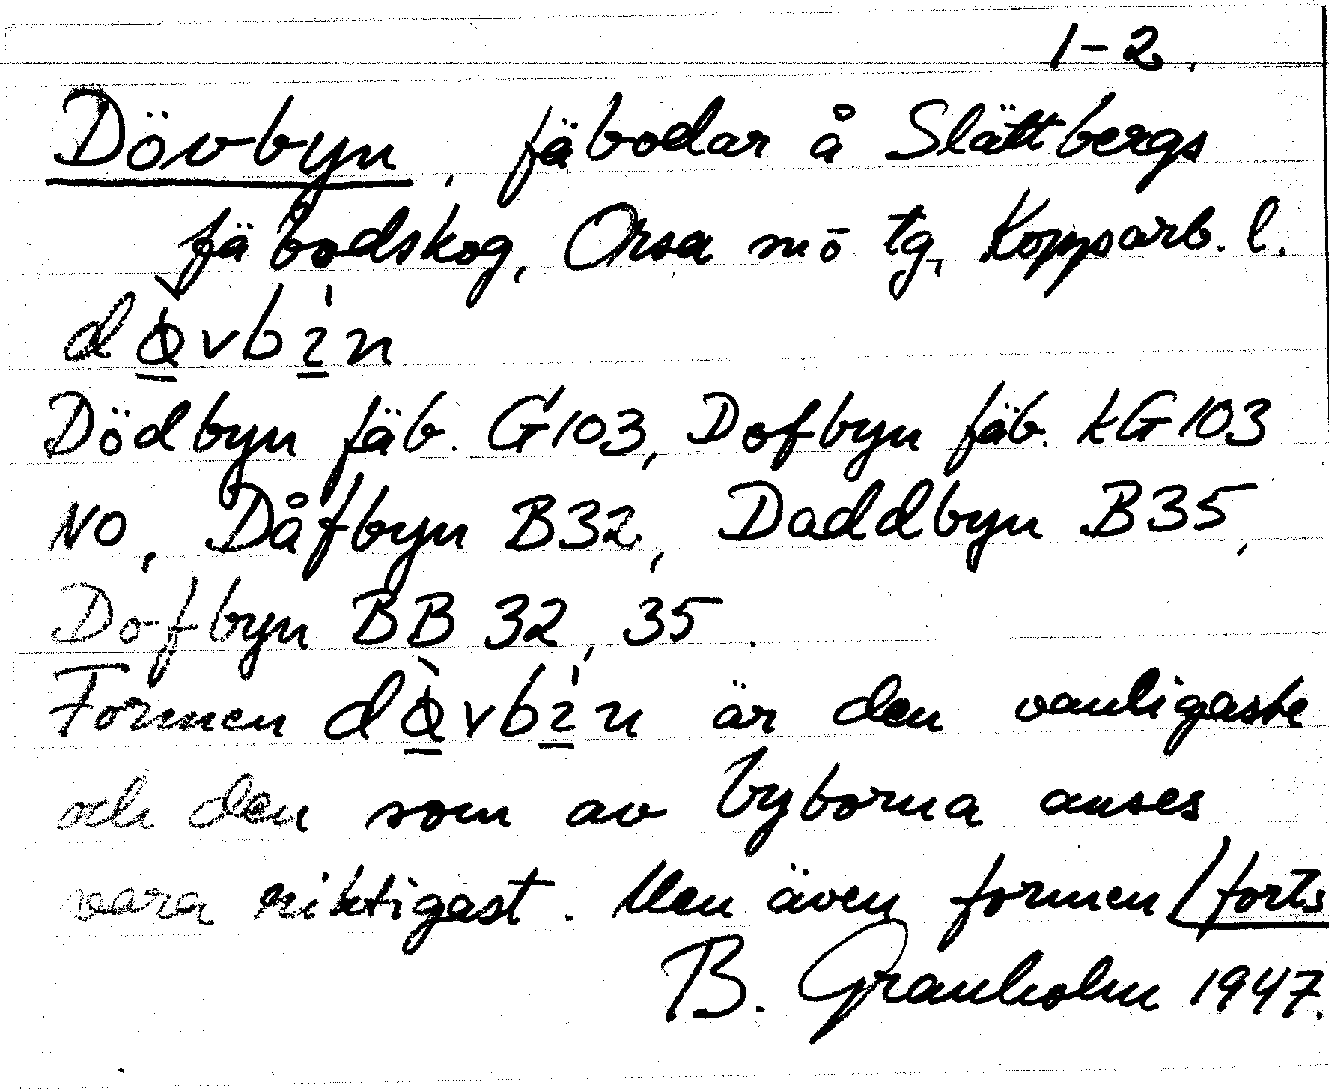 1-2.
Dövbyn, fäbodar å Slättbergs
fäbodskog, Orsa sn ö tg, Kopparb. l.
Dödbyn fäb. G103, Dofbyn fäb. kG103
NO, Dåfbyn B32, Daddbyn B35,
Dofbyn BB 32, 35.
Formen är den vanligaste
och den som av byborna anses
vara riktigast. Men även formen /forts
B. Granholm 1947.